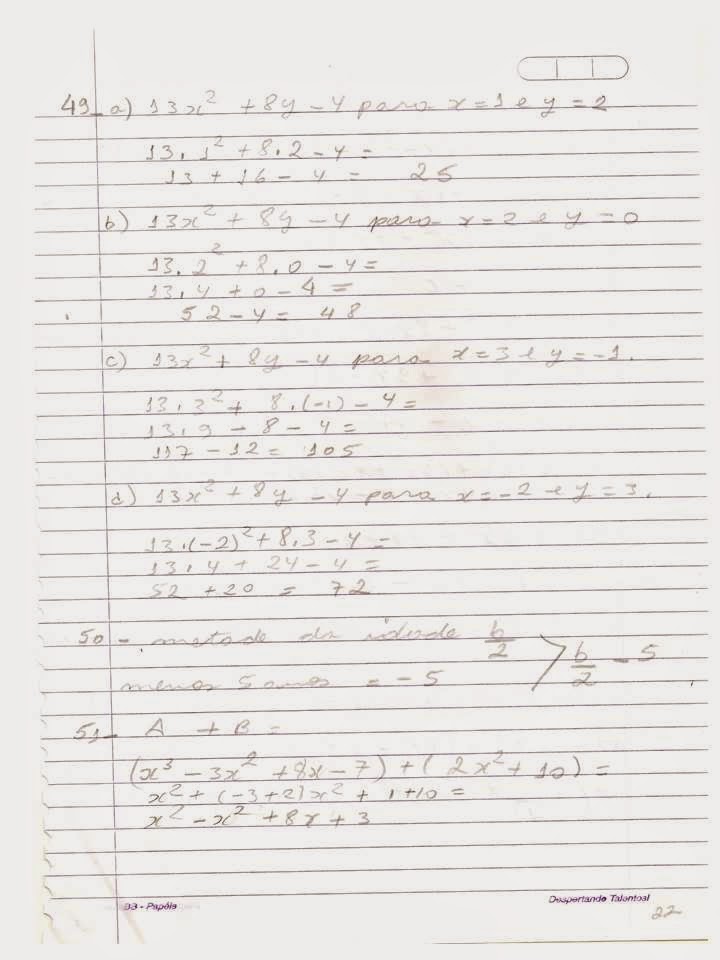 49- a) 13x² + 8y - 4 para x = 1 e y = 2
13 . 1² + 8 . 2 - 4 =
13 + 16 - 4 = 25
b) 13x² + 8y - 4 para x = 2 e y = 0
13 . 2² + 8 . 0 - 4 =
13 . 4 + 0 - 4 =
52 - 4 = 48
c) 13x² + 8y - 4 para x = 3 e y = -1.
13 . 3² + 8 . (-1) - 4 =
13 . 9 - 8 - 4 =
117 - 12 = 105
d) 13x² + 8y - 4 para x = -2 e y = 3.
13 . (-2)² + 8 . 3 - 4 =
13 . 4 + 24 - 4 =
52 + 20 = 72
50 - metade da idade b/2 > b/2 - 5
menos 5 anos = -5
51 - A + B =
(x³ - 3x² + 8x - 7) + (2x² + 10) =
x² + (-3+2)x² + 1 + 10 =
x² - x² + 8x + 3
BB - Papéis
Despertando Talentos!
22